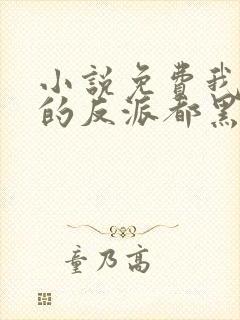 小說免費我
的反派都黑
童乃高